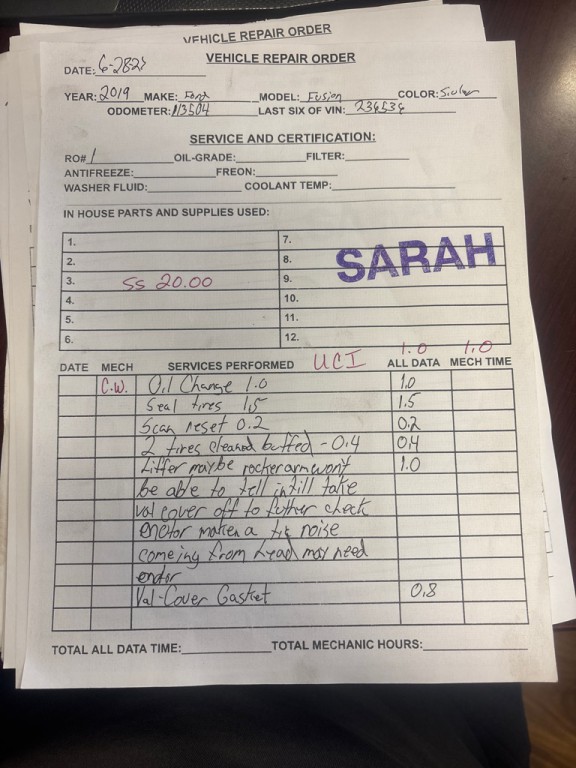 VEHICLE REPAIR ORDER
VEHICLE REPAIR ORDER
DATE: 6-28-2
YEAR: 2019 MAKE: Ford MODEL: Fusion COLOR: Silver
ODOMETER: 113504 LAST SIX OF VIN: 236536
SERVICE AND CERTIFICATION:
RO# 1 OIL-GRADE: FILTER:
ANTIFREEZE: FREON:
WASHER FLUID: COOLANT TEMP:
IN HOUSE PARTS AND SUPPLIES USED:
1. 7.
2. 8. SARAH
3. SS 20.00 9.
4. 10.
5. 11.
6. 12.
UCI 1.0 1.0
DATE MECH SERVICES PERFORMED ALL DATA MECH TIME
C.W. Oil Change 1.0 1.0
Seal tires 1.5 1.5
Scan reset 0.2 0.2
2 tires cleaned buffed - 0.4 0.4
Lifter maybe rocker arm won't 1.0
be able to tell intill take
val cover off to futher check
motor maken a tic noise
comeing from head may need
Val-Cover Gasket 0.8
TOTAL ALL DATA TIME: TOTAL MECHANIC HOURS: